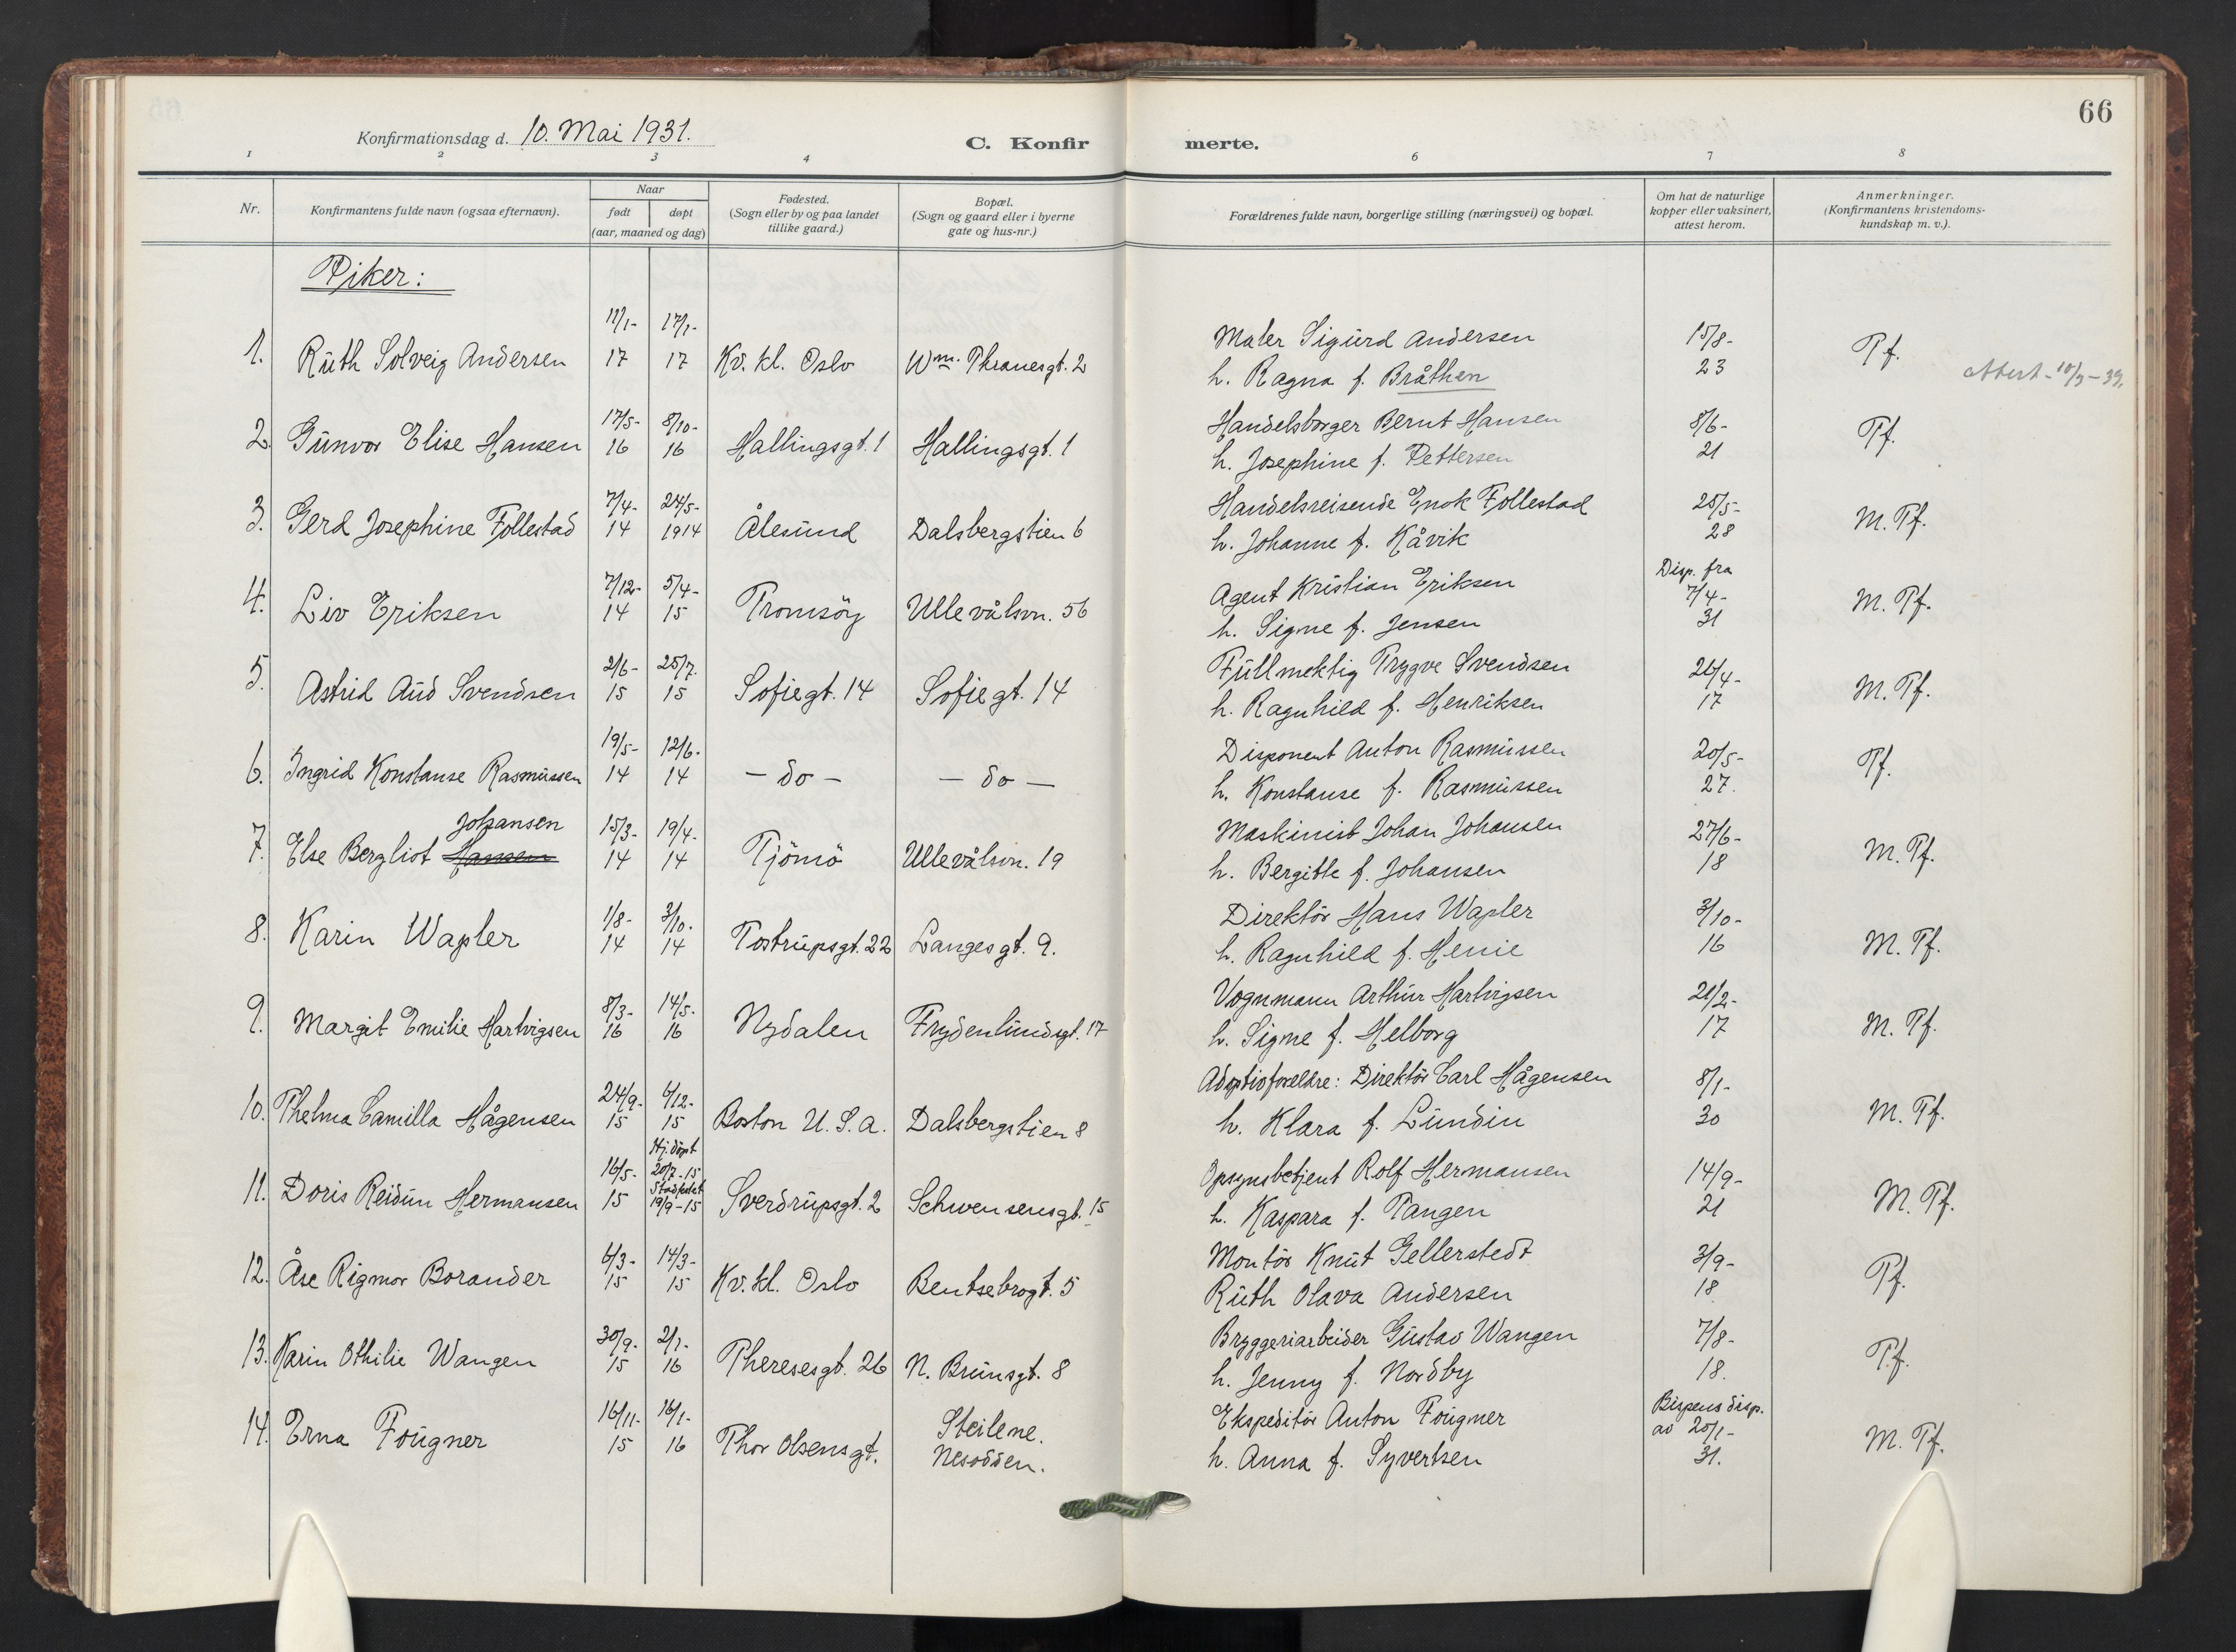 66
Konfirmationsdag d. 10. Mai 1931.
C. Konfir
merte.
1 2 3 4 6 7 8
Nr.
Konfirmantens fulde navn (ogsaa efternavn).
Naar
født døpt
(aar, maaned og dag)
Fødested.
(Sogn eller by og paa landet
tillike gaard.)
Bopæl.
(Sogn og gaard eller i byerne
gate og hus-nr.)
Forældrenes fulde navn, borgerlige stilling (næringsvei) og bopæl.
Om hat de naturlige
kopper eller vaksinert,
attest herom.
Anmerkninger.
(Konfirmantens kristendoms-
kundskap m. v.).
Piker:
11/1- 17/1- Maler Sigurd Andersen 15/8-
1. Ruth Solveig Andersen 17 17 Kv. kl. Oslo Wm. Thranesgt. 2 h. Ragna f. Bråthen 23 Tf. Attest - 10/3 - 39.
17/5- 8/10- Handelsborger Bernt Hansen 8/6-
2. Gunvor Elise Hansen 16 16 Hallingsgt. 1 Hallingsgt. 1 h. Josephine f. Pettersen 21 Tf.
7/4- 24/5- Handelsreisende Enok Follestad 25/5-
3. Gerd Josephine Follestad 14 1914 Ålesund Dalsbergstien 6 h. Johanne f. Kåvik 28 M. Tf.
Disp. fra
7/12- 5/4- Agent Kristian Eriksen 7/4-
4. Liv Eriksen 14 15 Tromsøy Ullevålsvn. 56 h. Signe f. Jensen 31 M. Tf.
2/6- 25/7. Fullmektig Trygve Svendsen 26/4-
5. Astrid Aud Svendsen 15 15 Sofiegt. 14 Sofiegt. 14 h. Ragnhild f. Henriksen 17 M. Tf.
19/5- 12/6. Disponent Anton Rasmussen 20/5-
6. Ingrid Konstanse Rasmussen 14 14 - do - - do - h. Konstanse f. Rasmussen 27. Tf.
Johansen 15/3- 19/4. Maskinist Johan Johansen 27/6-
7. Else Bergliot Hansen 14 14 Tjömö Ullevålsvn. 19 h. Bergitte f. Johansen 18 M. Tf.
1/8- 3/10. Direktör Hans Wapler 3/10-
8. Karin Wapler 14 14 Tostrupsgt. 22 Langesgt. 9. h. Ragnhild f. Henie 16 M. Tf.
8/3- 14/5. Vognmann Arthur Hartvigsen 21/2-
9. Margit Emilie Hartvigsen 16 16 Nydalen Frydenlundsgt. 17 h. Signe f. Helborg 17 M. Tf.
24/9- 6/12- Adoptivforeldre: Direktör Carl Hågensen 8/1-
10. Thelma Camilla Hågensen 15 15 Boston U. S. A. Dalsbergstien 8 h. Klara f. Lundin 30 M. Tf.
Hj. döpt
16/5- 20/7-15 Opsynsbetjent Rolf Hermansen 14/9-
Stadfestet
11. Doris Reidun Hermansen 15 19/9-15 Sverdrupsgt. 2 Schwensensgt. 15 h. Kaspara f. Tangen 21 M. Tf.
6/3- 14/3- Montör Knut Gellerstedt 3/9-
12. Åse Rigmor Borander 15 15 Kv. kl. Oslo Bentsebrogt. 5 Ruth Olava Andersen 18 Tf.
30/9. 2/1- Bryggeriarbeider Gustav Wangen 7/8-
13. Karin Othilie Wangen 15 16 Theresesgt. 26 N. Brunsgt. 8 h. Jenny f. Nordby 18. Tf.
Bispens disp.
16/11- 16/1- Steilene. Ekspeditör Anton Fougner av 20/1-
14. Erna Fougner 15 16 Thor Olsensgt. Nesodden. h. Anna f. Syvertsen 31. M. Tf.